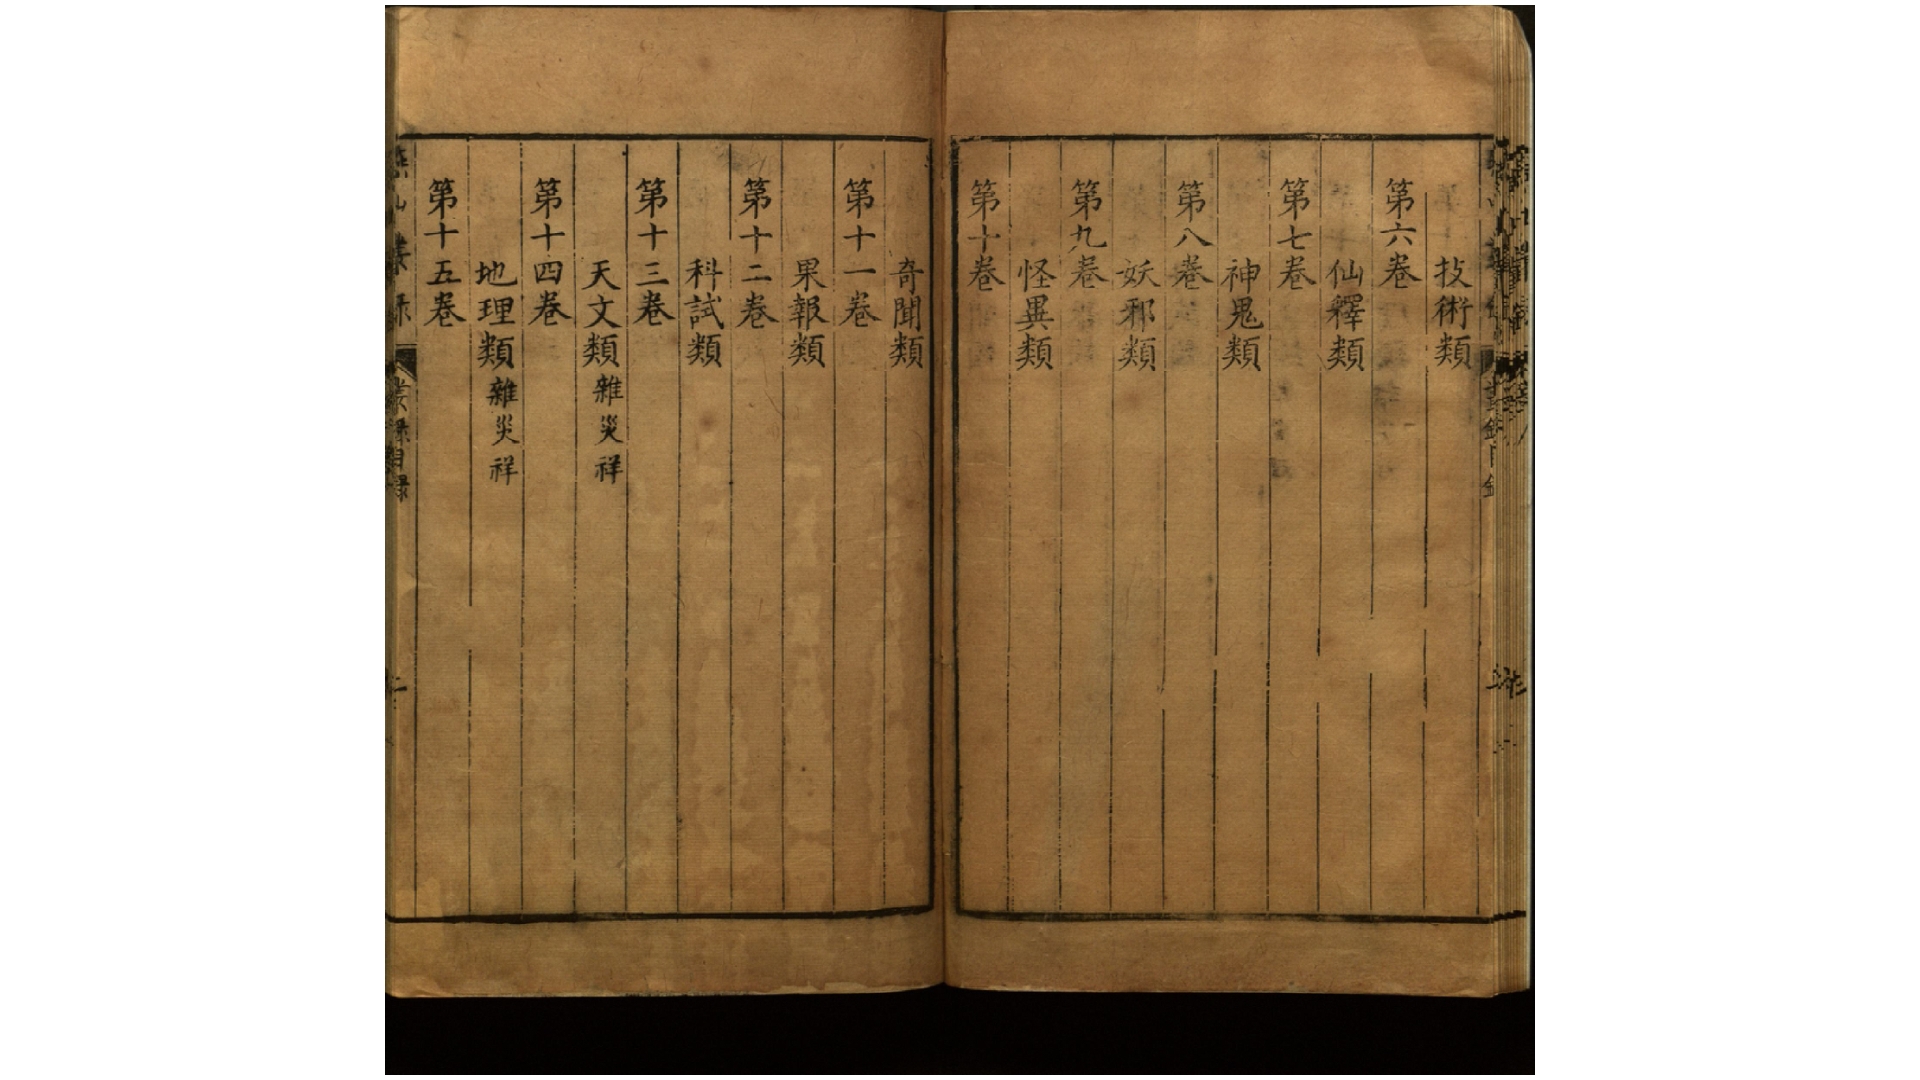 技術類
第六卷
仙釋類
第七卷
神鬼類
第八卷
妖邪類
第九卷
怪異類
第十卷
奇聞類
第十一卷
果報類
第十二卷
科試類
第十三卷
天文類雜災祥
第十四卷
地理類雜災祥
第十五卷